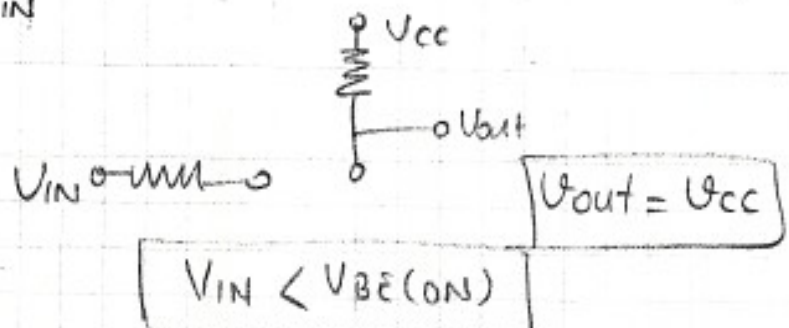 IN
VCC
Vout
VIN
Vout = VCC
VIN < VBE(ON)